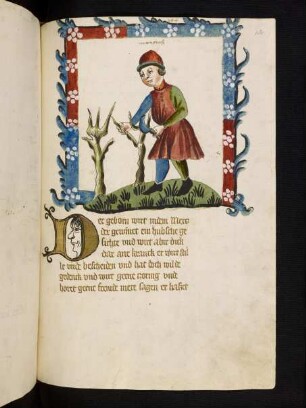 er geborn wirt in dem Mercz
der gewinet ein hubsche ge
sichte vnd wirt aber doch
dar an kranck er wirt stil
le vnde bescheiden vnd hat doch wilde
gedenck vnd wirt gerne zornig vnd
horet gerne fremde mere sagen er hasset